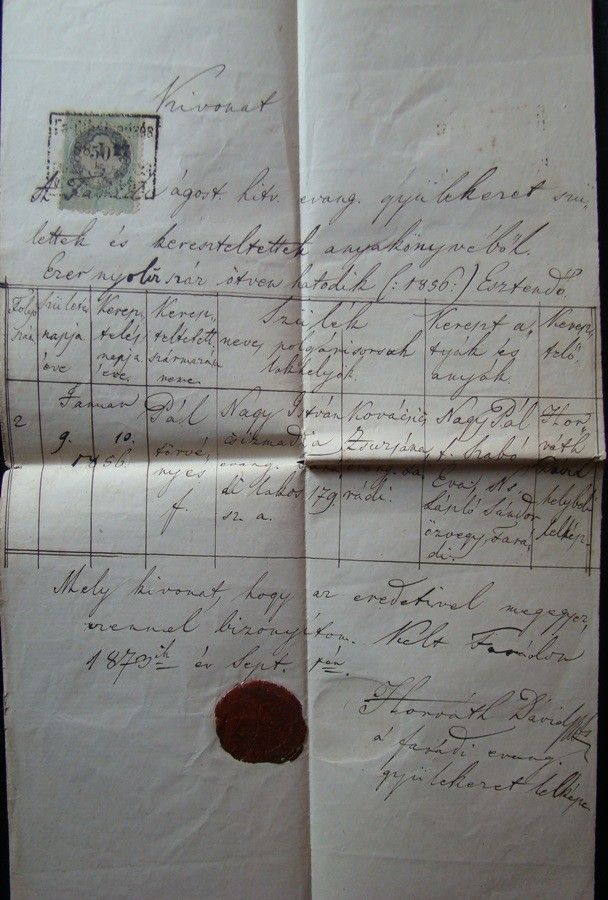 Kivonat
50
A Farádi ágost. hitv. evang. gyülekezet szü-
lettek és kereszteltettek anyakönyvéből.
Ezer nyolcz száz ötven hatodik (: 1856 :) Esztendő.
Folyó szám Születés napja éve Keresz- telés napja éve. Keresz- teltetett neve, Szülék polgárisorsuk lakhelyök. Kereszt a- tyák és anyák. Keresz- telő.
2 Januar 9. 10. 1856. Pál törvé- nyes f. Nagy István csizmadia evang. lakos 179 sz. a. Kovácsics Zsuzsána rádi. Nagy Pál s. Szabó Eva, Ns László Sándor özvegy, Fara- di. Hor- váth Dávid helybeli lelkész
Mely kivonat, hogy az eredetivel megegyez,
ezennel bizonyítom. Kelt Farádon
1873ik év Sept.
Horváth Dávid
a farádi evang.
gyülekezet lelkésze